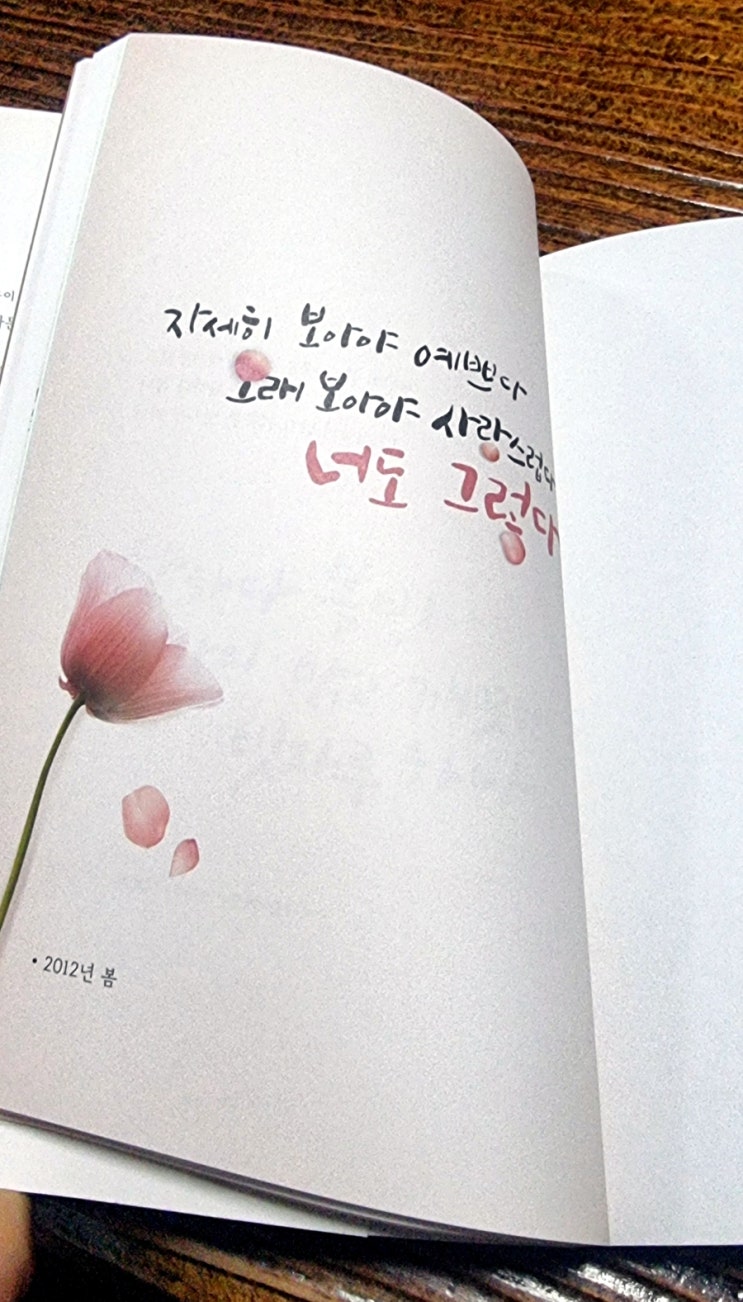 자세히 보아야 예쁘다
오래 보아야 사랑스럽다
너도 그렇다
• 2012년 봄